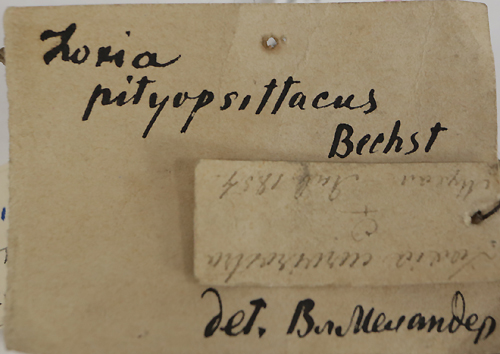 Loxia
pityopsittacus
Bechst
Loxia curvirostra
♀
Jul. 1854.
дет. Вл Меландер